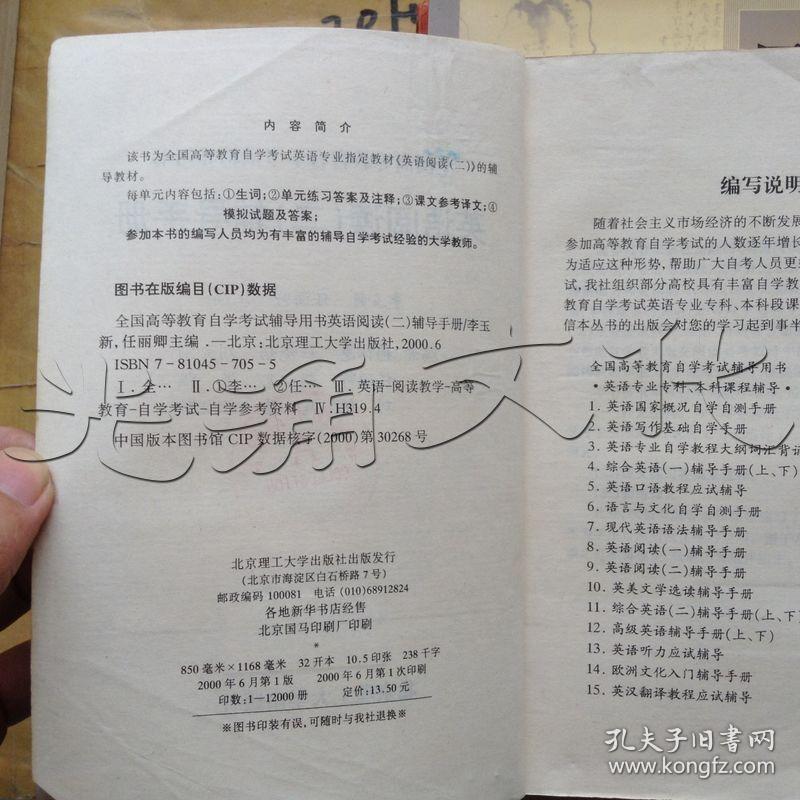 内容简介
该书为全国高等教育自学考试英语专业指定教材《英语阅读(二)》的辅
导教材。
每单元内容包括:①生词;②单元练习答案及注释;③课文参考译文;④
模拟试题及答案;
参加本书的编写人员均为有丰富的辅导自学考试经验的大学教师。
图书在版编目(CIP)数据
全国高等教育自学考试辅导用书英语阅读(二)辅导手册/李玉
新,任丽卿主编.—北京:北京理工大学出版社,2000.6
ISBN 7-81045-705-5
Ⅰ.全… Ⅱ.①李… ②任… Ⅲ.英语-阅读教学-高等
教育-自学考试-自学参考资料 Ⅳ.H319.4
中国版本图书馆CIP数据核字(2000)第30268号
北京理工大学出版社出版发行
(北京市海淀区白石桥路7号)
邮政编码 100081 电话 (010)68912824
各地新华书店经售
北京国马印刷厂印刷
*
850毫米×1168毫米 32开本 10.5印张 238千字
2000年6月第1版 2000年6月第1次印刷
印数:1—12000册 定价:13.50元
※图书印装有误,可随时与我社退换※
编写说明
随着社会主义市场经济的不断发展
参加高等教育自学考试的人数逐年增长
为适应这种形势,帮助广大自考人员更
试,我社组织部分高校具有丰富自学教
教育自学考试英语专业专科、本科段课
信本丛书的出版会对您的学习起到事半
全国高等教育自学考试辅导用书
·英语专业专科、本科课程辅导·
1. 英语国家概况自学自测手册
2. 英语写作基础自学手册
3. 英语专业自学教程大纲词汇背
4. 综合英语(一)辅导手册(上、下)
5. 英语口语教程应试辅导
6. 语言与文化自学自测手册
7. 现代英语语法辅导手册
8. 英语阅读(一)辅导手册
9. 英语阅读(二)辅导手册
10. 英美文学选读辅导手册
11. 综合英语(二)辅导手册(上、下)
12. 高级英语辅导手册(上、下)
13. 英语听力应试辅导
14. 欧洲文化入门辅导手册
15. 英汉翻译教程应试辅导
孔夫子旧书网
www.kongfz.com